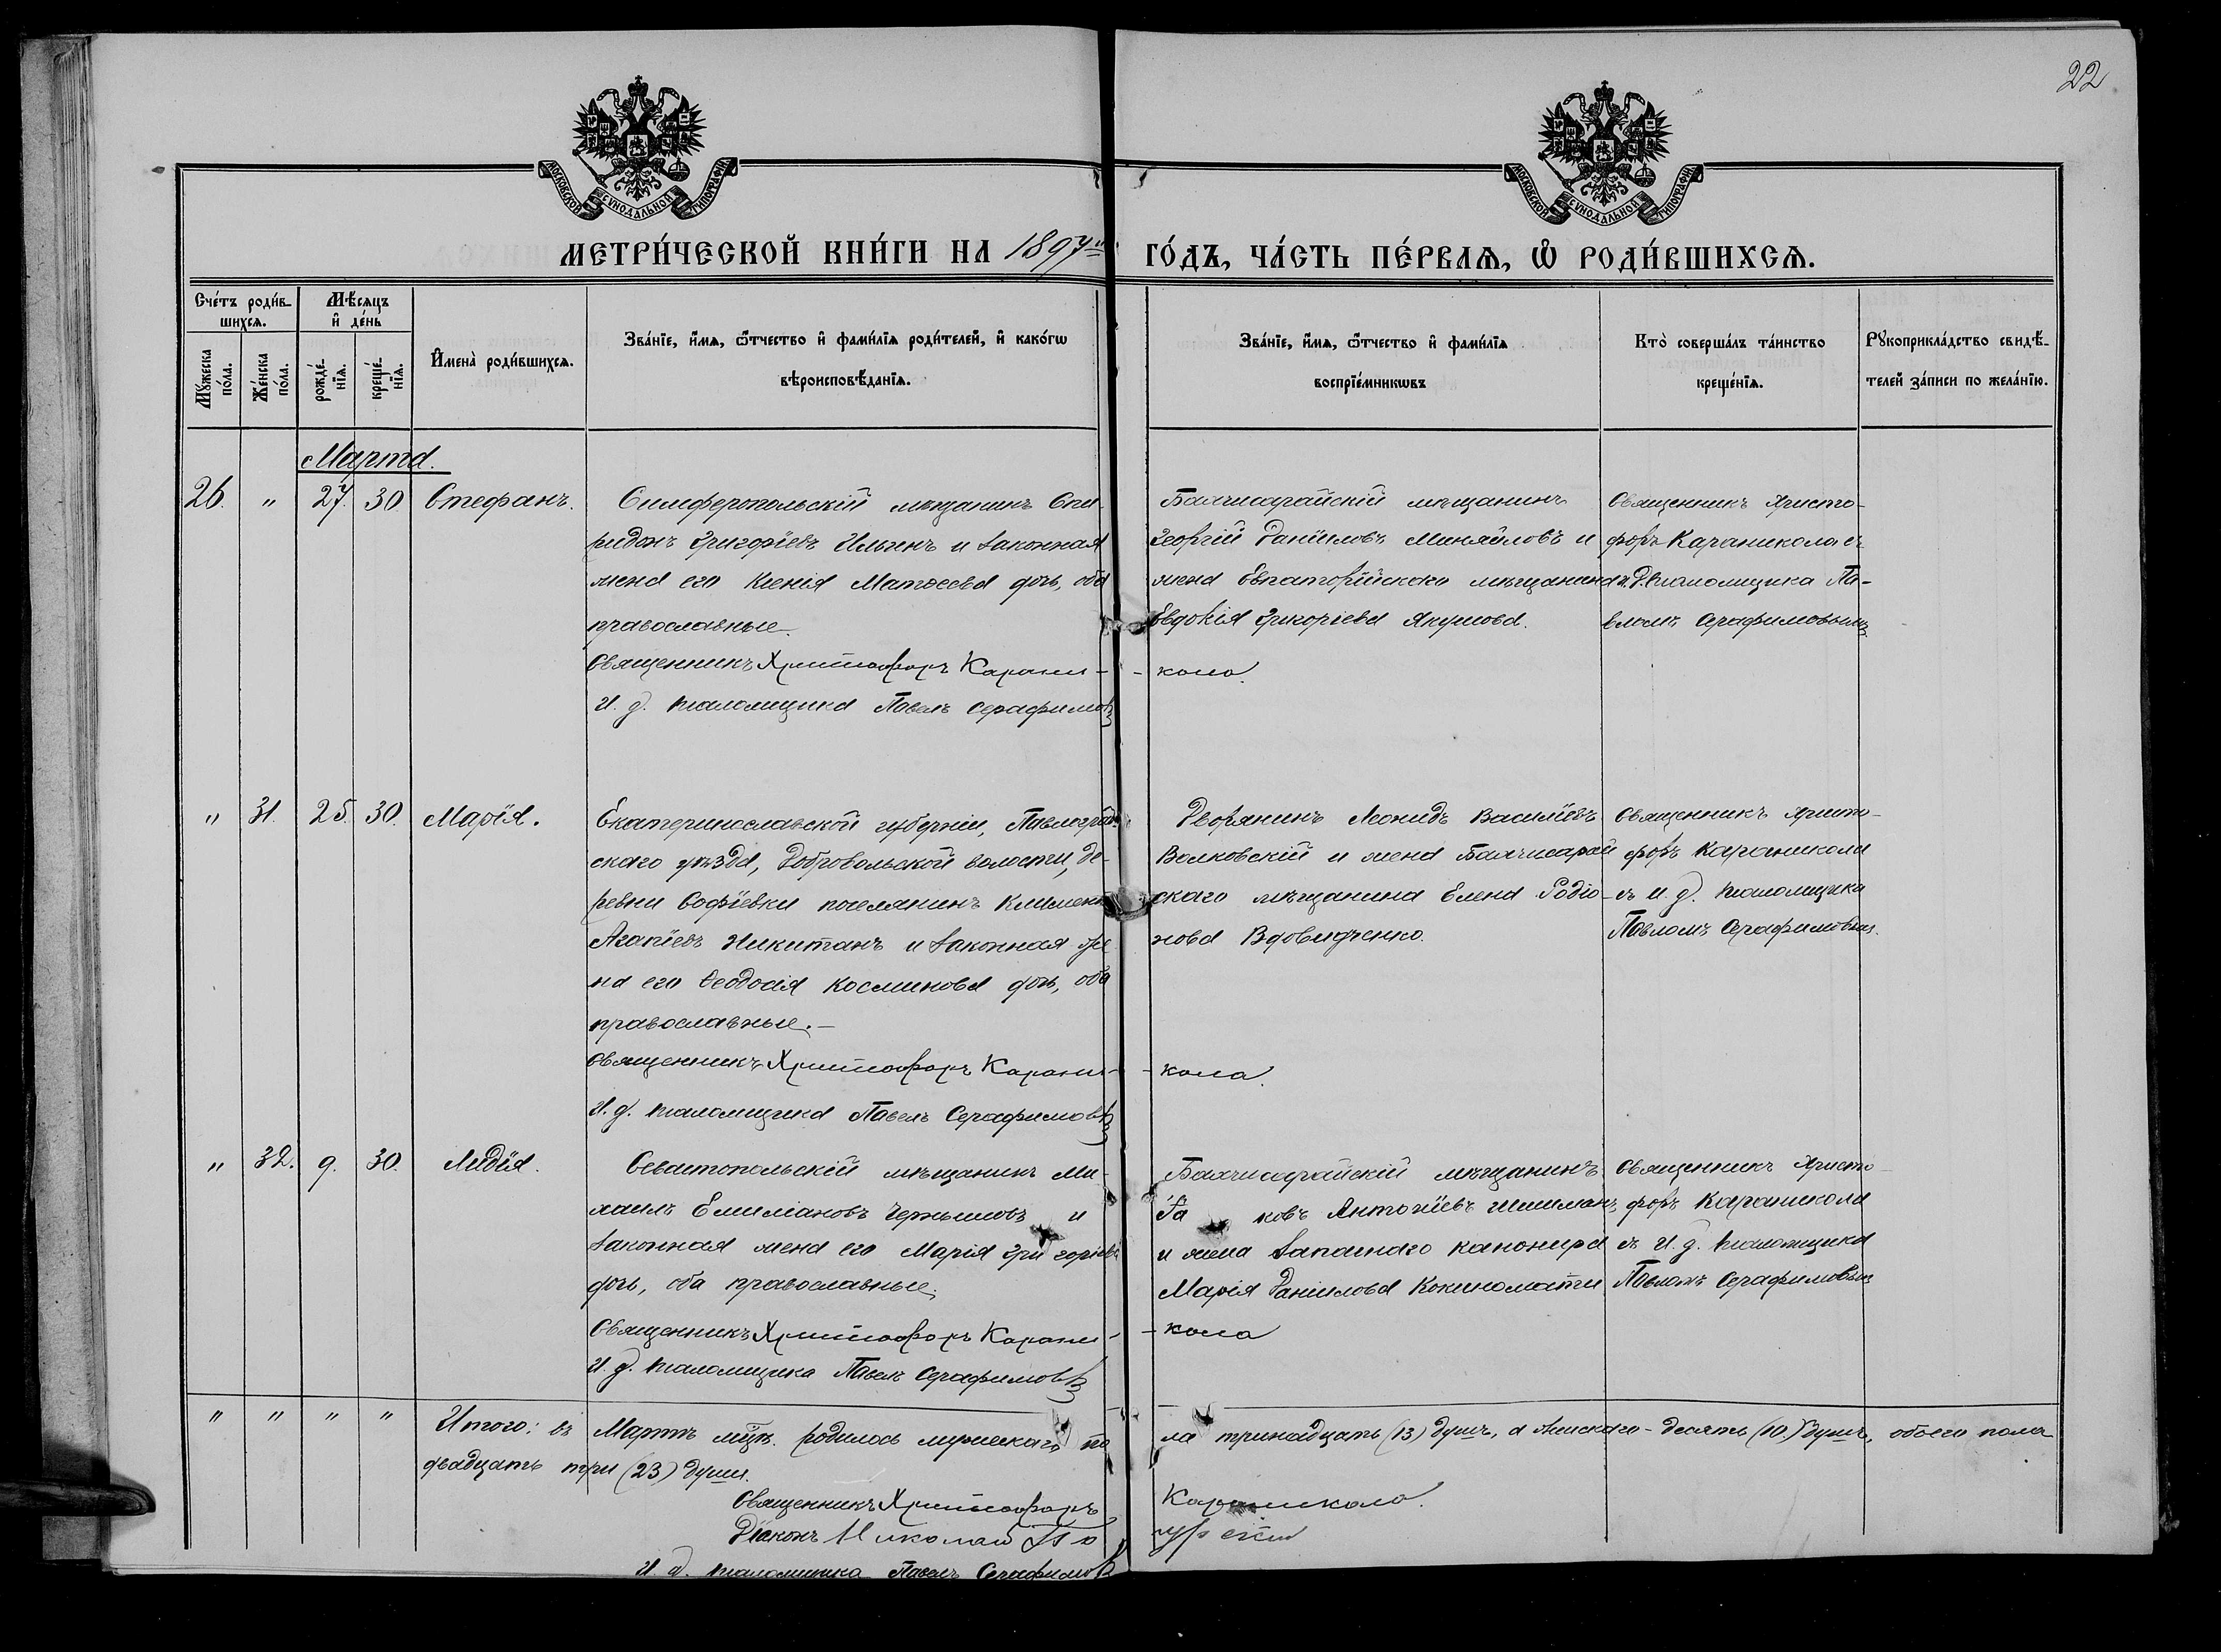 22
МОСКОВСКОЙ СѴНОДАЛЬНОЙ ТИПОГРАФІИ
МОСКОВСКОЙ СѴНОДАЛЬНОЙ ТИПОГРАФІИ
МЕТРИ́ЧЕСКОЙ КНИ́ГИ НА 1897й ГО́ДЪ, ЧА́СТЬ ПЕ́РВАѦ, Ѽ РОДИ́ВШИХСѦ.
Сче́тъ роди́в-
шихсѧ.
Мѣ́сѧцъ
и҆ де́нь
Мꙋ́жеска
по́ла.
Же́нска
по́ла.
рожде́-
нїѧ.
креще́-
нїѧ.
И҆мена̀ роди́вшихсѧ.
Зва́нїе, и҆́мѧ, ѻ҆́тчество и҆ фами́лїѧ роди́телей, и҆ како́гѡ
вѣроисповѣ́данїѧ.
Зва́нїе, и҆́мѧ, ѻ҆́тчество и҆ фами́лїѧ
воспрїе́мникѡвъ
Кто̀ соверша́лъ та́инство
креще́нїѧ.
Рꙋкоприкла́дство свидѣ́-
телей за́писи по жела́нїю.
Марта.
26. " 27. 30 Стефанъ.
Симферопольскій мѣщанинъ Спи-
ридонъ Григоріевъ Ильинъ и законная
жена его Ксенія Матѳеева дочь, оба
православные.
Священникъ Христофоръ Карани-
И. д. псаломщика Павелъ Серафимовъ
Бахчисарайскій мѣщанинъ
Георгій Даніиловъ Михайловъ и
жена Евпаторійскаго мѣщанина
Евдокія Григоріева Якушова.
кола.
Священникъ Христо-
форъ Караникола съ
и. д. псаломщика Па-
вломъ Серафимовымъ
" 31. 25. 30. Марія.
Екатеринославской губерніи, Павлоград-
скаго уѣзда, Добровольской волости, де-
ревни Софіевки поселянинъ Климентъ
Агапіевъ Никитанъ и законная же
на его Ѳеодосія Косминова дочь, оба
православные.
Священникъ Христофоръ Карани-
И. д. псаломщика Павелъ Серафимовъ
Дворянинъ Леонидъ Василіевъ
Волковскій и жена Бахчисарай
скаго мѣщанина Елена Родіо-
нова Вдовидченко.
кола.
Священникъ Христо-
форъ Караникола
съ и. д. псаломщика
Павломъ Серафимовым.
" 32. 9. 30. Лидія.
Севастопольскій мѣщанинъ Ми-
хаилъ Емиліановъ Чернышовъ и
законная жена его Марія Григоріева
дочь, оба православные.
Священникъ Христофоръ Карани-
И. д. псаломщика Павелъ Серафимовъ
Бахчисарайскій мѣщанинъ
ковъ Антоніевъ Шишманъ
и жена запаснаго канонира
Марія Даніилова Кокиномати
кола
Священникъ Христо-
форъ Караникола
съ И. д. псаломщика
Павломъ Серафимовым
" " " " Итого: въ Мартѣ мѣц. родилось мужескаго по
ла тринадцать (13) душъ, а женскаго - десять (10) душъ, обоего пола
двадцать три (23) души.
Священникъ Христофоръ Караникола.
Діаконъ Николай
И. д. псаломщика Павелъ Серафимовъ